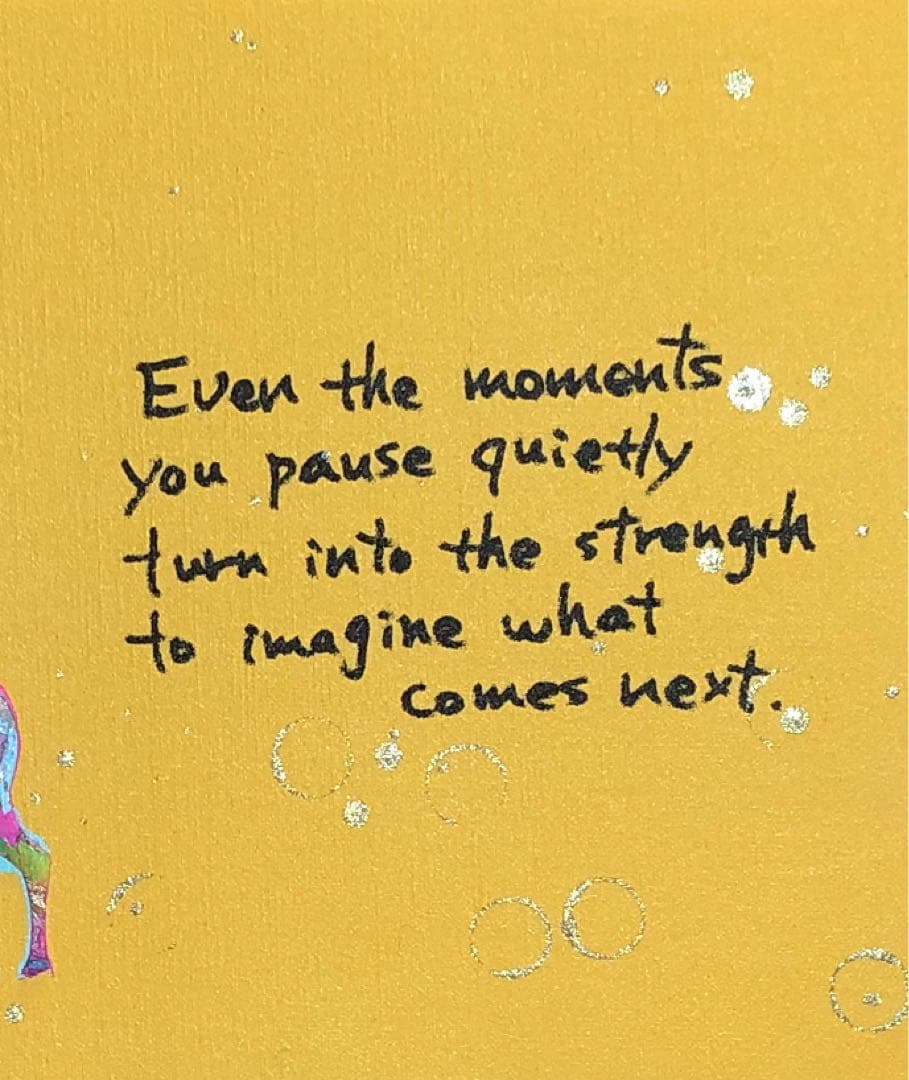 Even the moments
you pause quietly
turn into the strength
to imagine what
comes next.